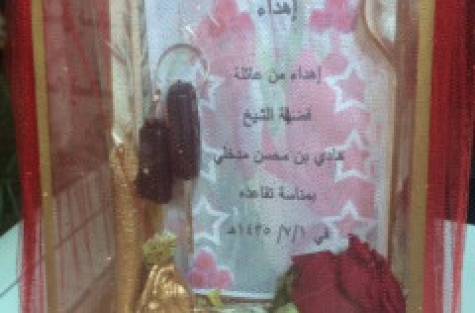 إهداء
إهداء من عائلة
فضيلة الشيخ
هادي بن محسن مدخلي
بمناسبة تقاعده
في ١/ ٧/ ١٤٣٥هـ